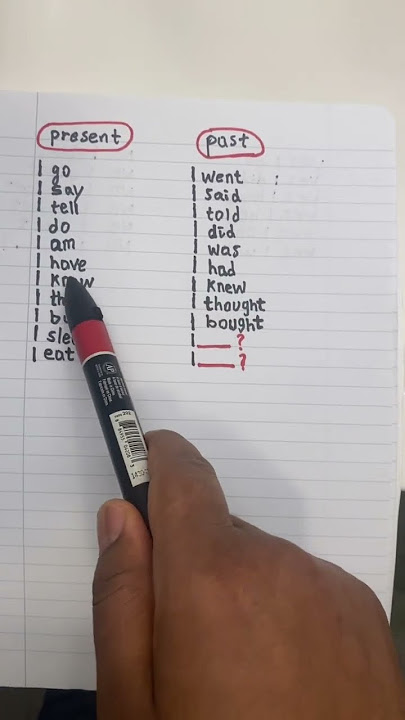 present
I go
I say
I tell
I do
I am
I have
I know
I
I
I
I eat
past
I went
I said
I told
I did
I was
I had
I knew
I thought
I bought
I ____ ?
I ____ ?